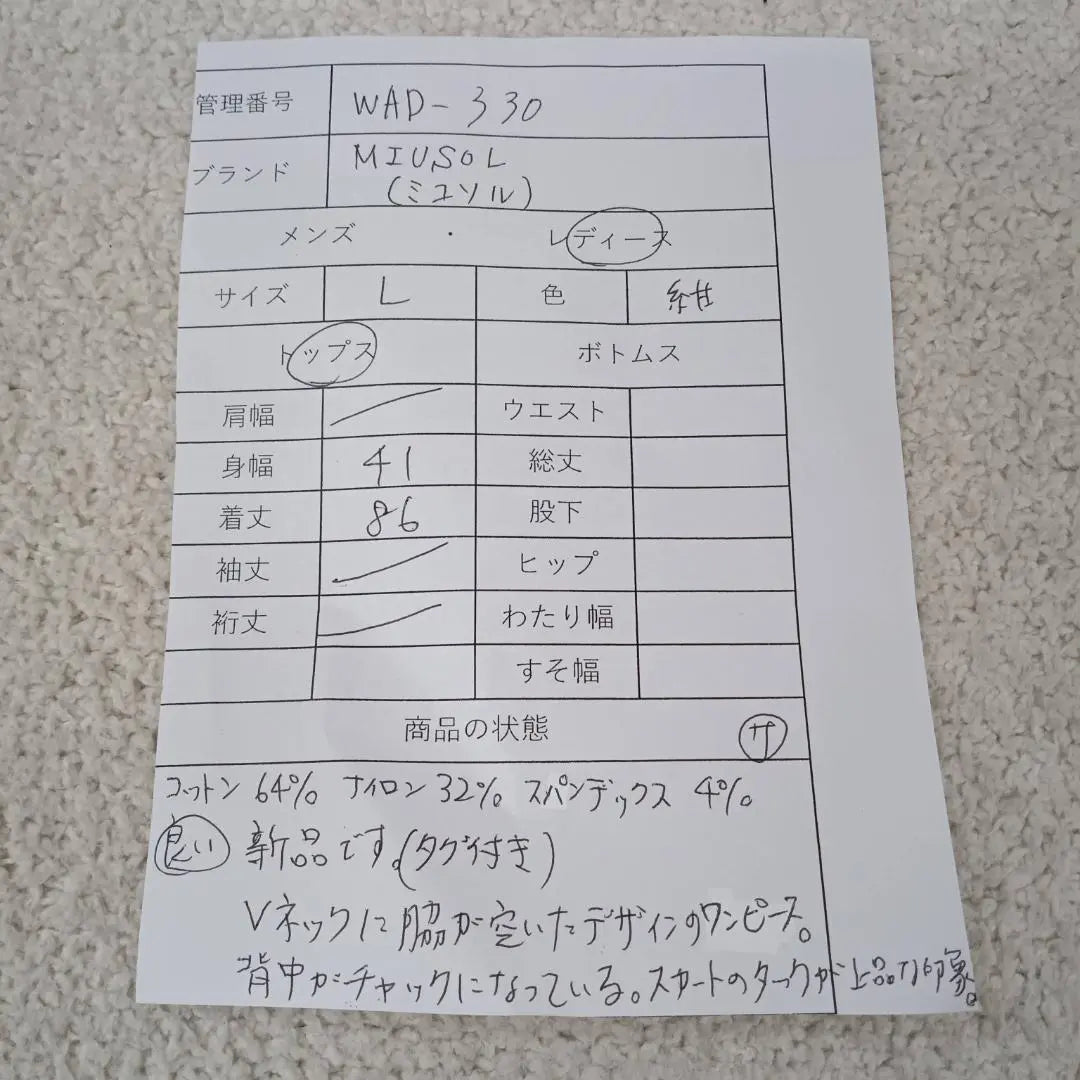 管理番号 WAD-330
ブランド MIUSOL
(ミュソル)
メンズ ・ レディース
サイズ L 色 紺
トップス ボトムス
肩幅 ウエスト
身幅 41 総丈
着丈 86 股下
袖丈 ヒップ
裄丈 わたり幅
すそ幅
商品の状態 サ
コットン 64% ナイロン 32% スパンデックス 4%
良い 新品です。(タグ付き)
Vネックに脇が空いたデザインのワンピース。
背中がチャックになっている。スカートのタックが上品な印象。